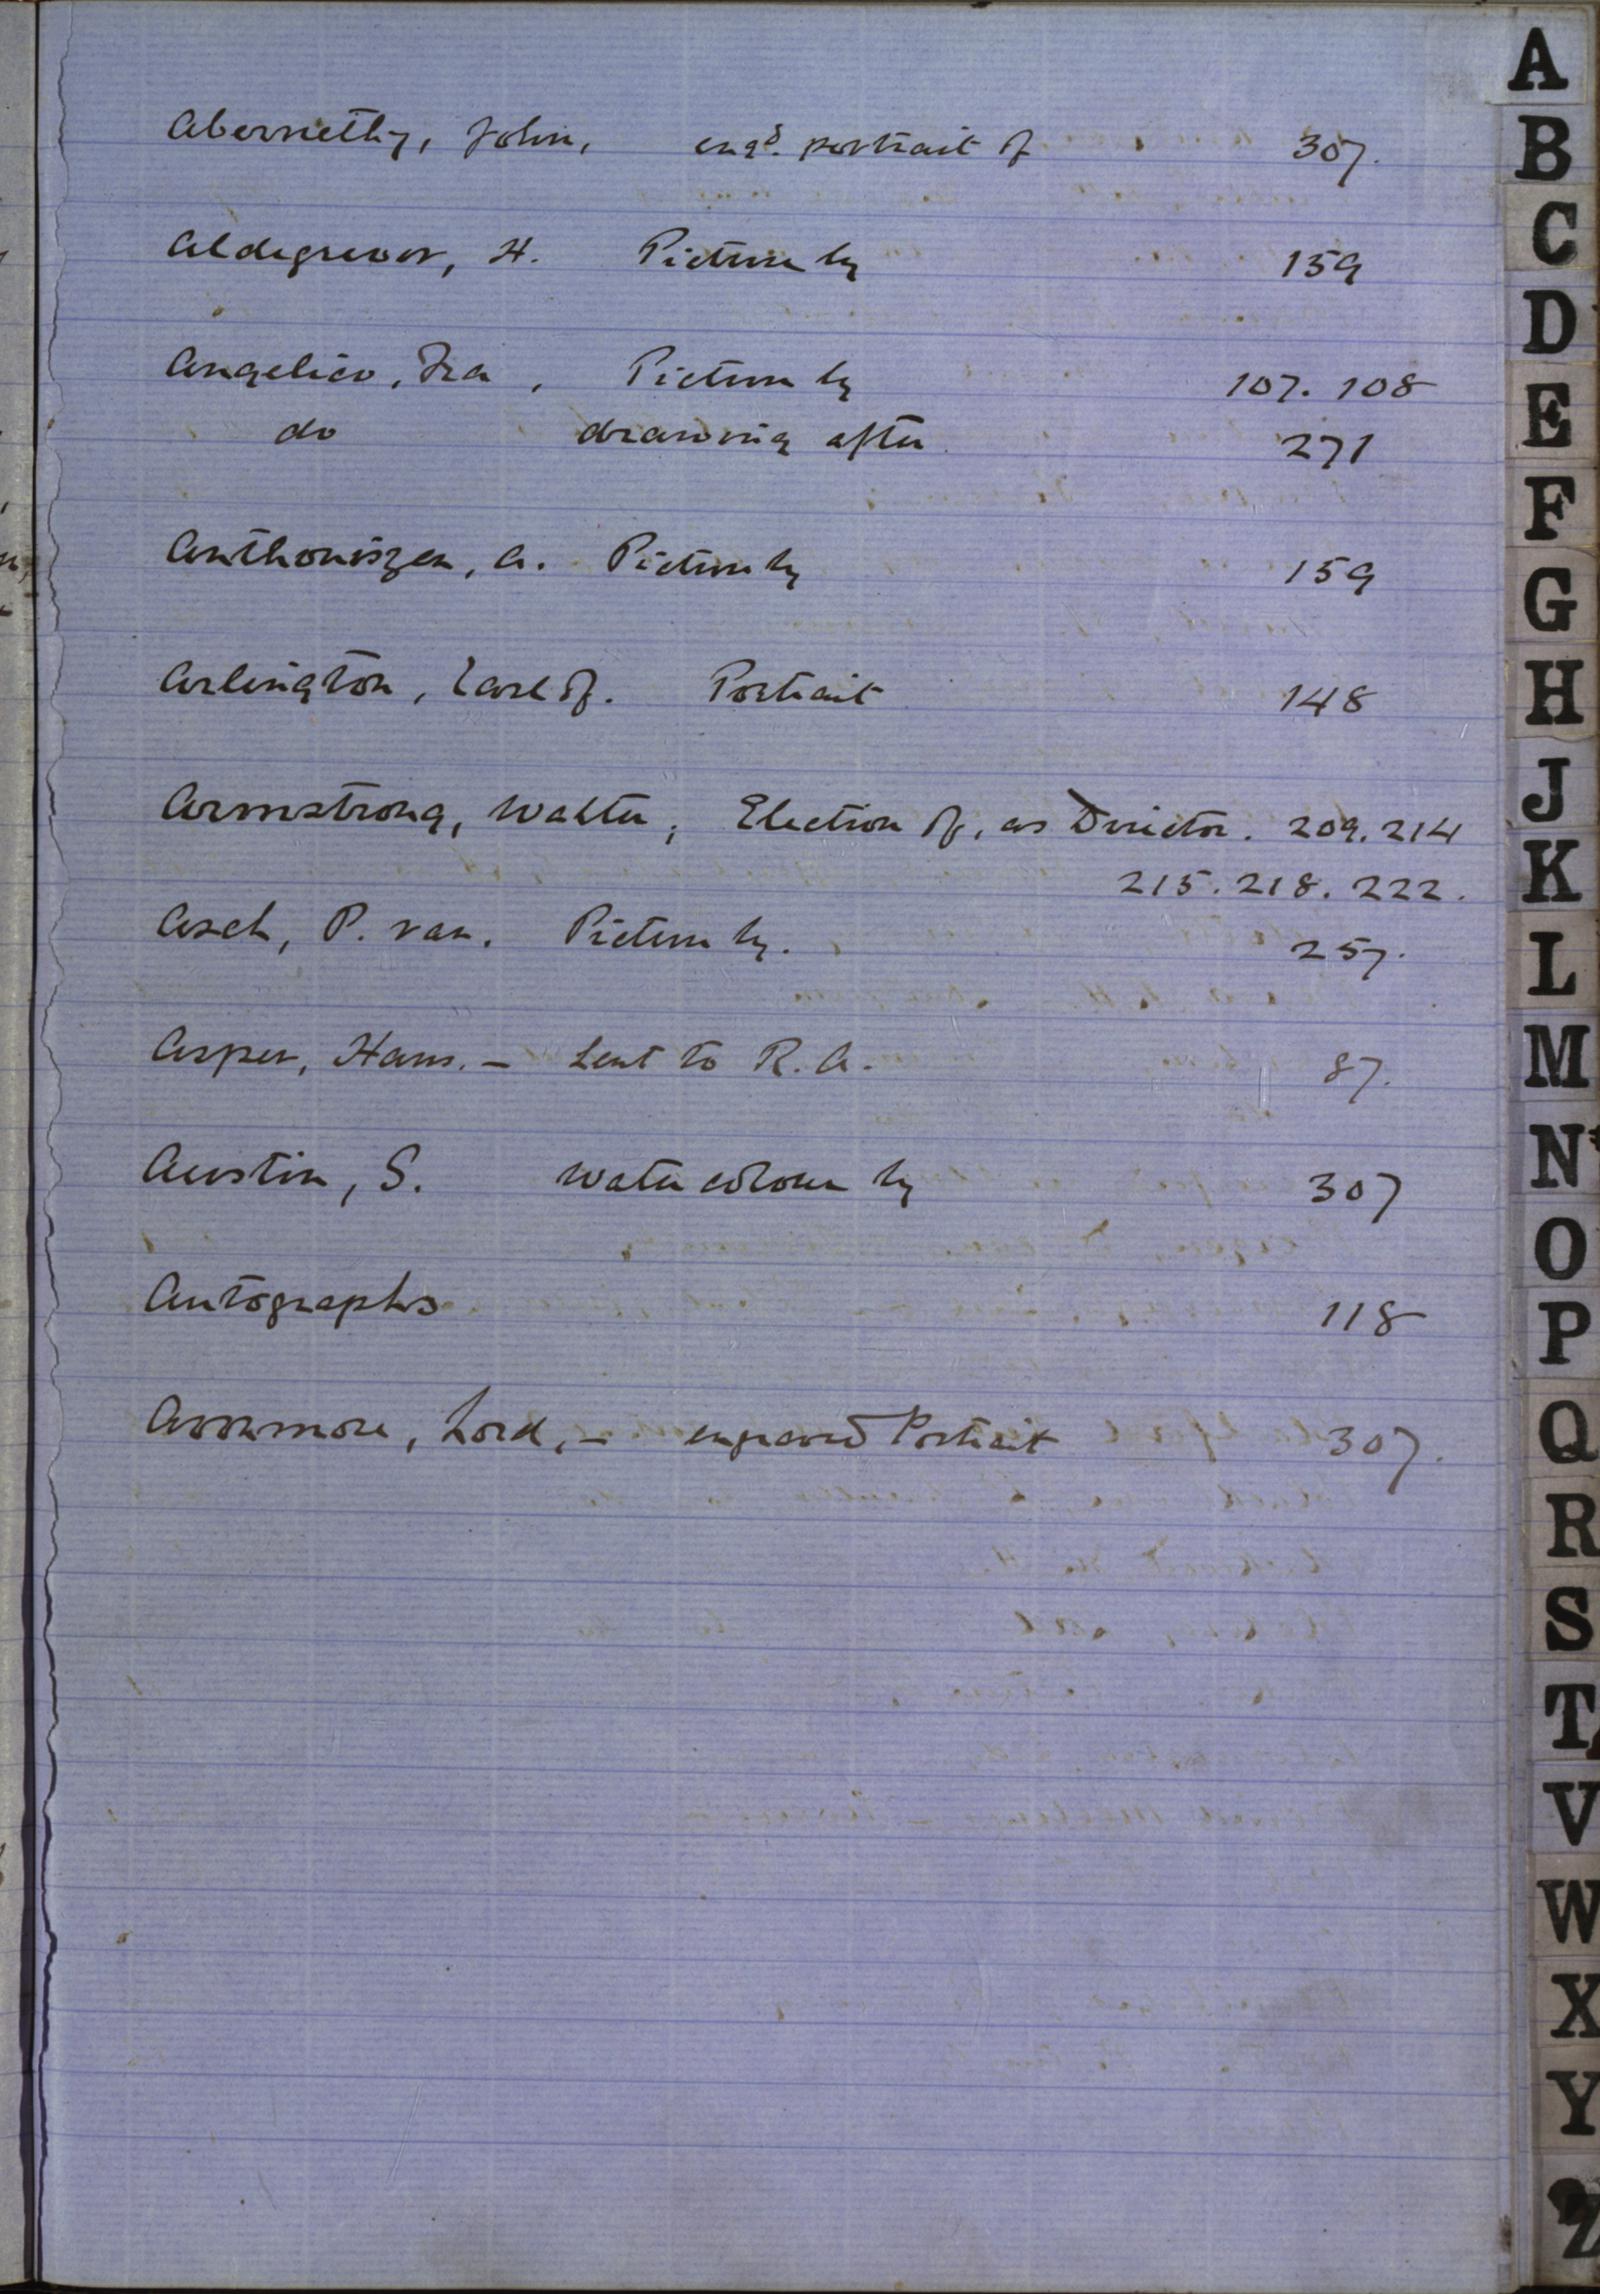 A
Abernethy, John, engd. portrait of 307.
B
C
Aldegrever, H. Picture by 159
D
Angelico, Fra, Picture by 107. 108
E
do drawing after 271
F
Anthoniszen, A. Picture by 159
G
Arlington, Earl of. Portrait 148
H
J
Armstrong, Walter, Election of, as Director. 209. 214
K
215. 218. 222.
Asch, P. van. Picture by. 257.
L
Asper, Hans. - Lent to R. A. 87.
M
N
Austin, S. Water colour by 307
O
Autographs 118
P
Avonmore, Lord, - engraved Portrait 307.
Q
R
S
T
V
W
X
Y
Z